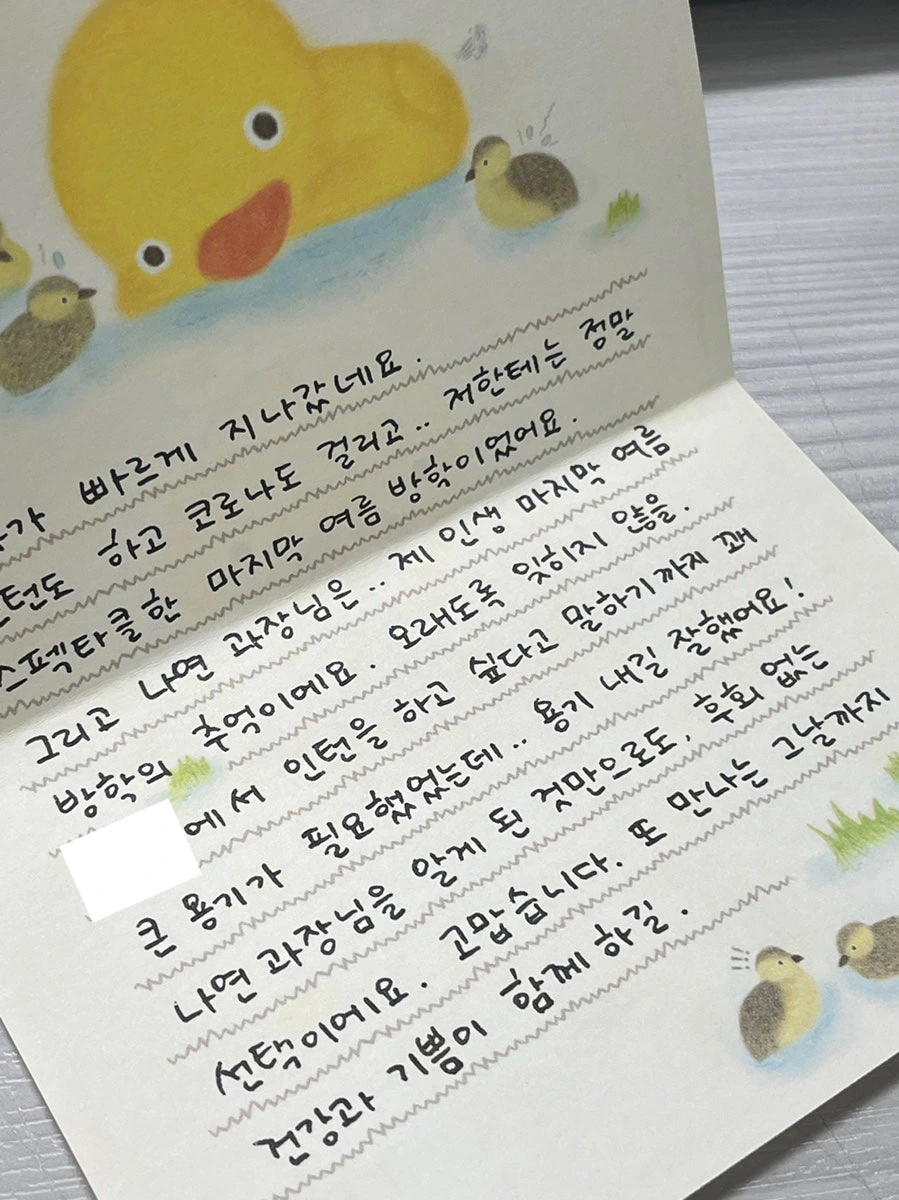 빠르게 지나갔네요.
하고 코로나도 걸리고.. 저한테는 정말
스펙타클한 마지막 여름 방학이었어요.
그리고 나연 과장님은.. 제 인생 마지막 여름
방학의 추억이에요. 오래도록 잊히지 않을.
에서 인턴을 하고 싶다고 말하기까지 꽤
큰 용기가 필요했었는데.. 용기 내길 잘했어요!
나연 과장님을 알게 된 것만으로도, 후회 없는
선택이에요. 고맙습니다. 또 만나는 그날까지
건강과 기쁨이 함께 하길.